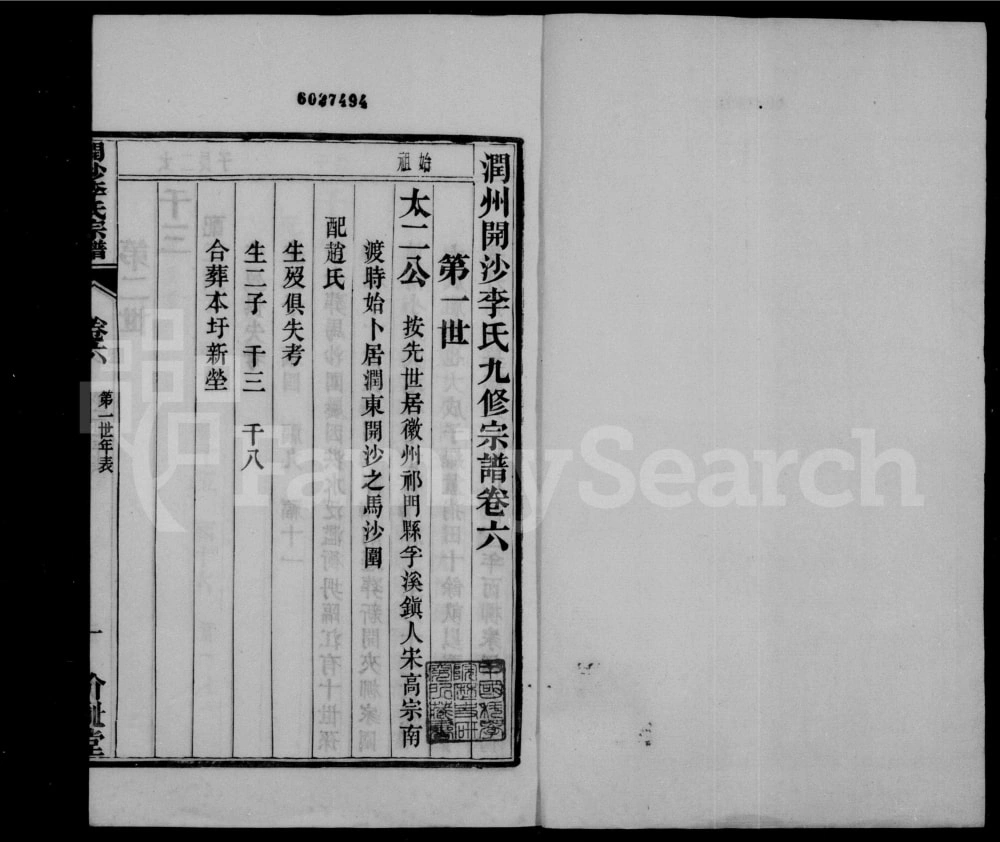 6037494
潤州開沙李氏九修宗譜卷六
始祖
第一世
太二公 按先世居徽州祁門縣孚溪鎮人宋高宗南
渡時始卜居潤東開沙之馬沙圍
配趙氏
生歿俱失考
生二子 干三 干八
合葬本圩新塋
開沙李氏宗譜
卷六
第一世年表
一
介祉堂
FamilySearch